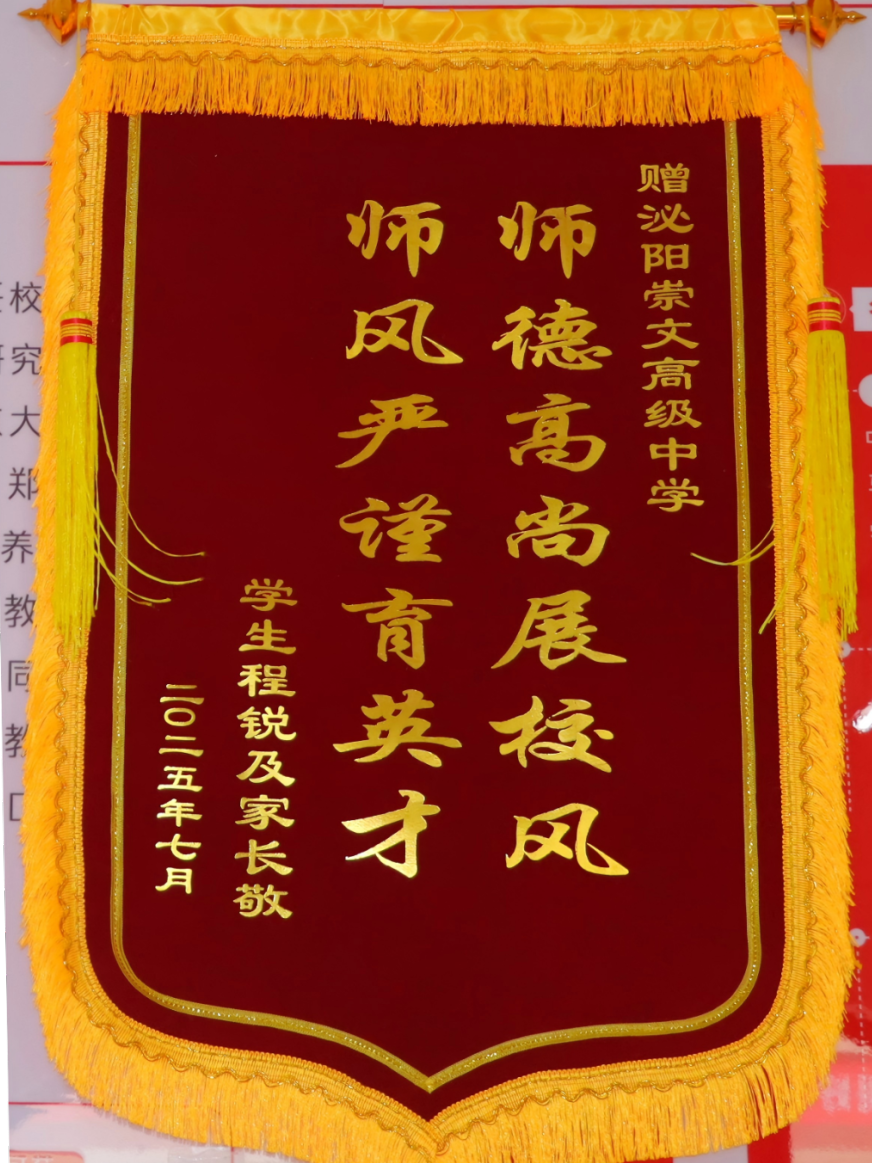 赠泌阳崇文高级中学
师德高尚展校风
师风严谨育英才
学生程锐及家长敬
二〇二五年七月
校
究
大
郑
养
教
同
教